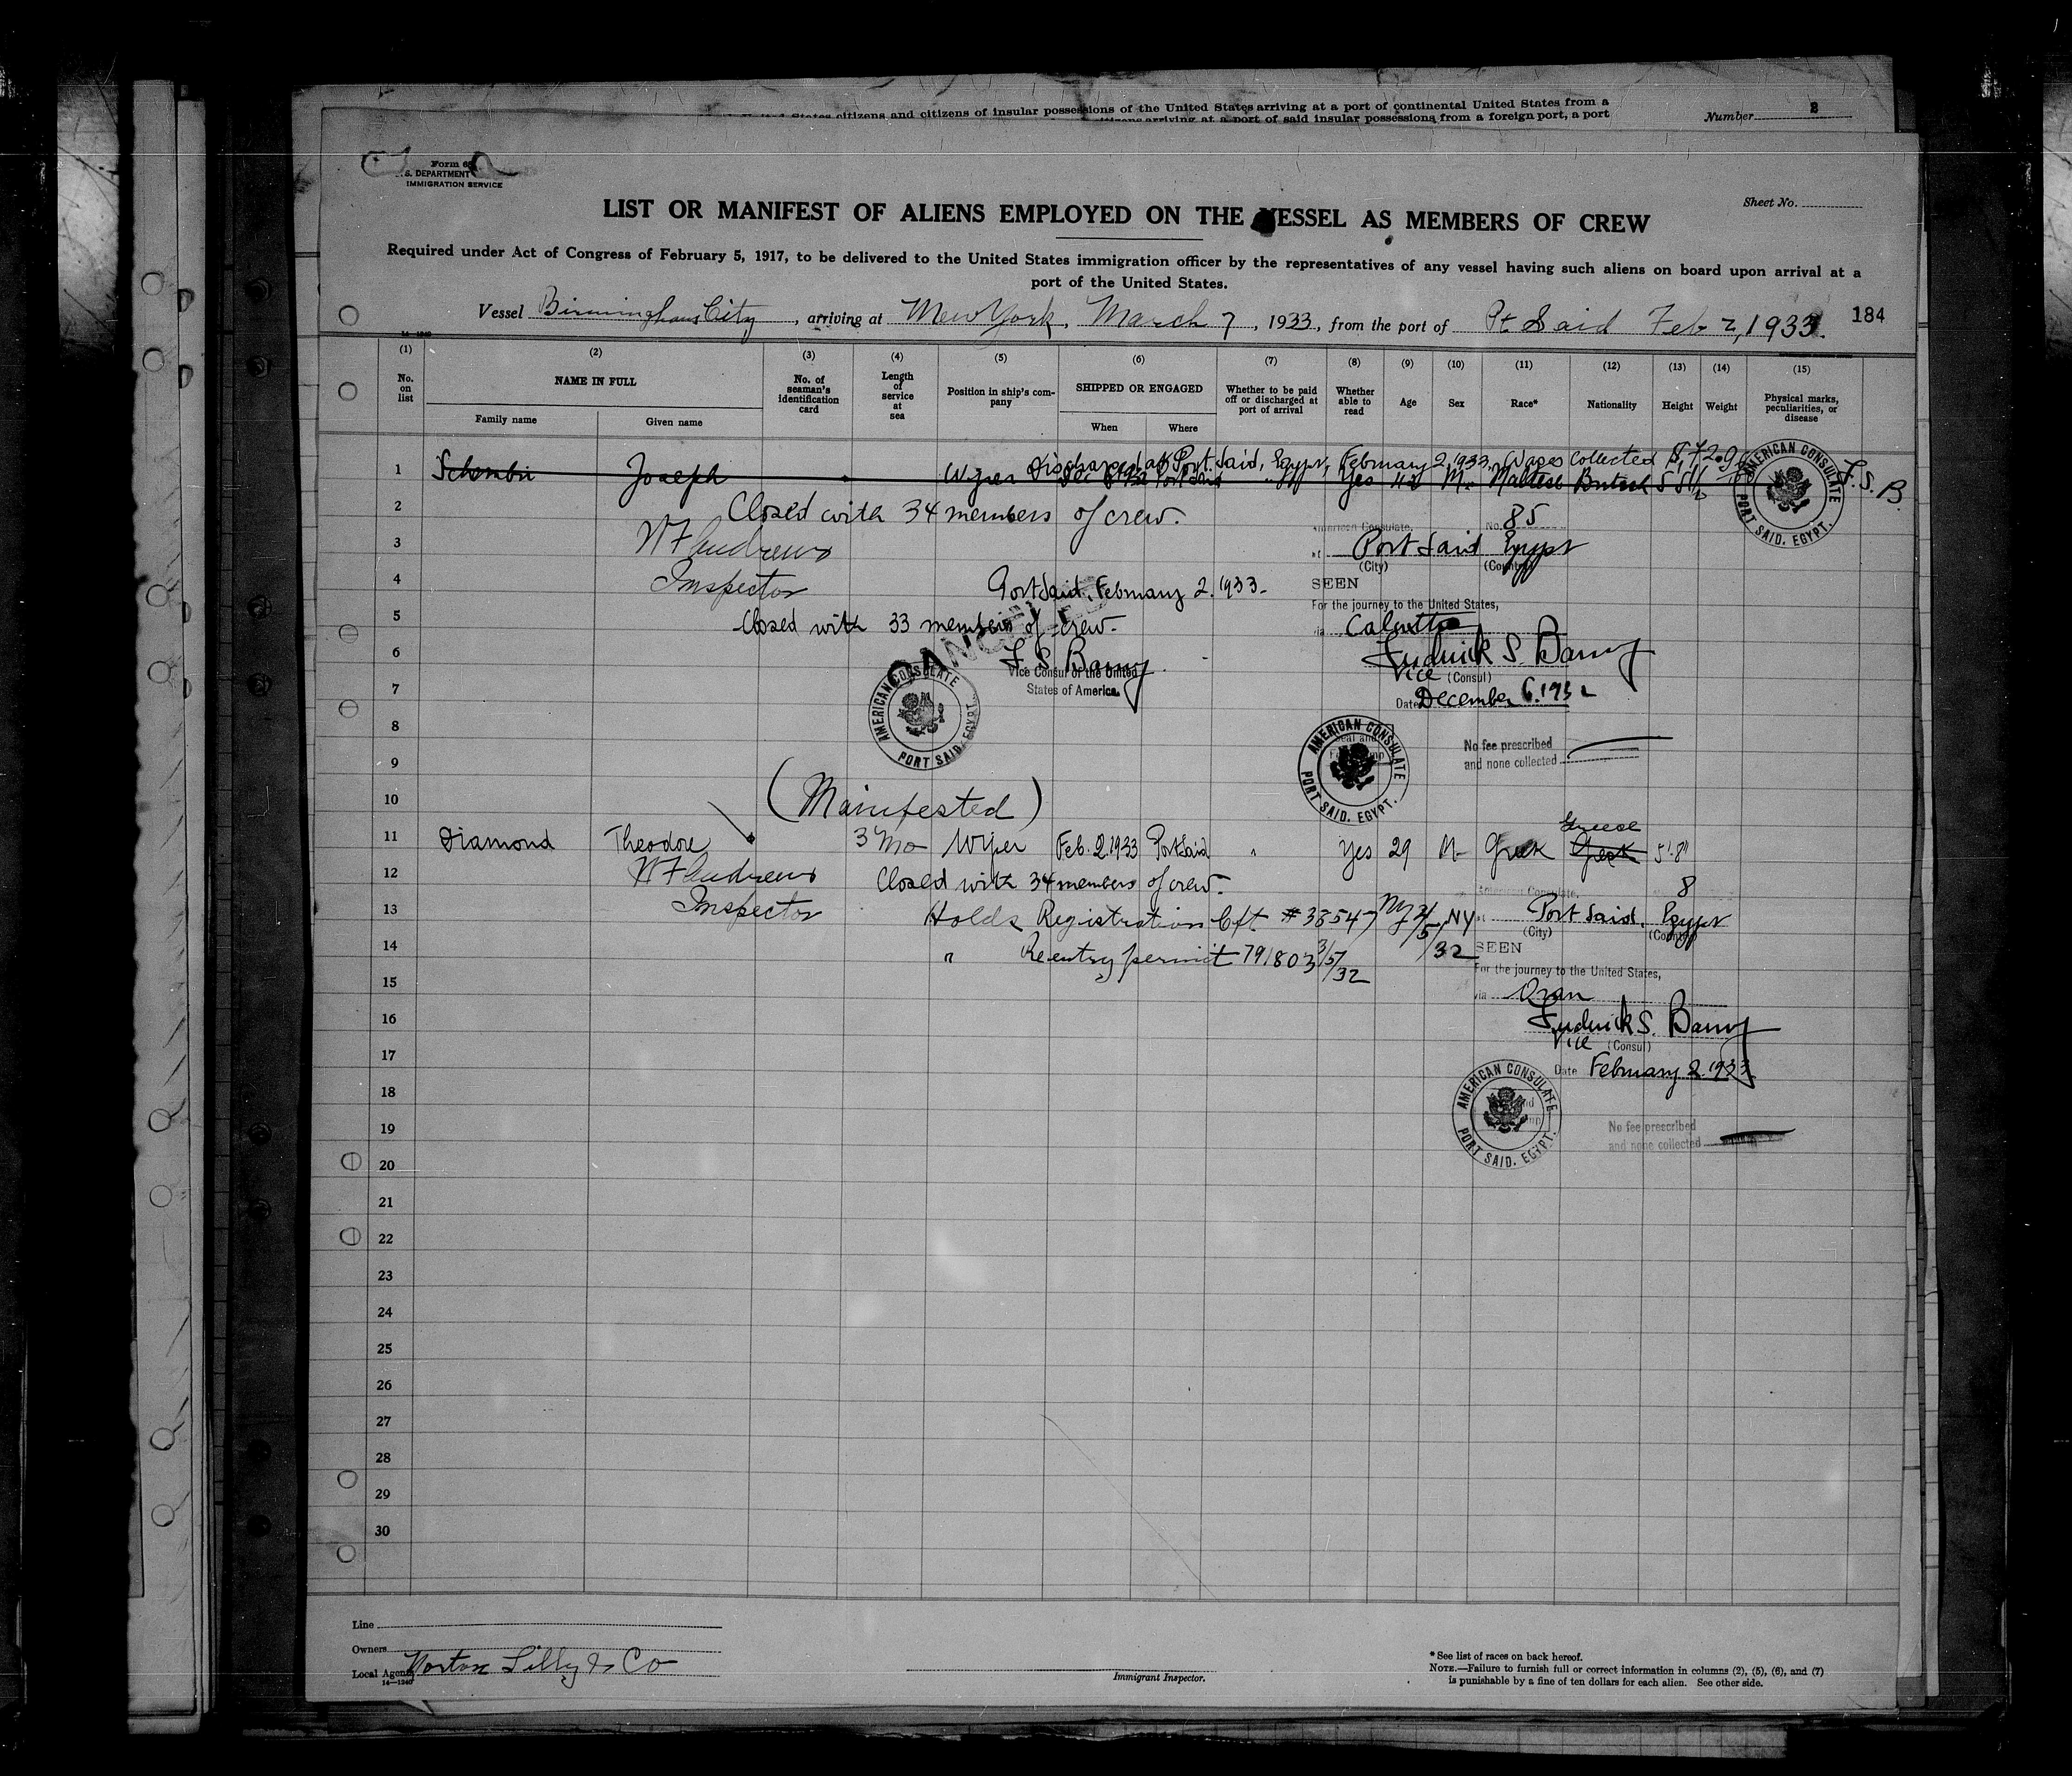 ions of the United States arriving at a port of continental United States from a
United States citizens and citizens of insular possessions
citizens arriving at a port of said insular possessions from a foreign port, a port
Number 2
Form 6
S. DEPARTMENT
IMMIGRATION SERVICE
Sheet No.
LIST OR MANIFEST OF ALIENS EMPLOYED ON THE VESSEL AS MEMBERS OF CREW
Required under Act of Congress of February 5, 1917, to be delivered to the United States immigration officer by the representatives of any vessel having such aliens on board upon arrival at a
port of the United States.
Vessel Birmingham City, arriving at New York, March 7, 1933, from the port of Pt Said Feb 2, 1933. 184
14-1240
(1) (2) (3) (4) (5) (6) (7) (8) (9) (10) (11) (12) (13) (14) (15)
No. on list NAME IN FULL No. of seaman's identification card Length of service at sea Position in ship's company SHIPPED OR ENGAGED Whether to be paid off or discharged at port of arrival Whether able to read Age Sex Race* Nationality Height Weight Physical marks, peculiarities, or disease
Family name Given name When Where
Discharged at Port Said, Egypt, February 2, 1933. Wages collected
1 Schembri Joseph Wiper Dec 6 1932 Port Said Yes M. Maltese British F.S.B.
AMERICAN CONSULATE PORT SAID, EGYPT.
2 Closed with 34 members of crew.
American Consulate, No. 85
3 N F Andrews
at Port Said Egypt
(City) (Country)
4 Inspector Port Said, February 2. 1933.
SEEN
For the journey to the United States,
5 Closed with 33 members of crew.
via Calcutta
CANCELLED
6 F. S. Barny
Frederick S. Barny
Vice Consul of the United
States of America.
Vice (Consul)
7
Date December 6. 1932
AMERICAN CONSULATE PORT SAID, EGYPT
8
AMERICAN CONSULATE PORT SAID, EGYPT.
No fee prescribed
and none collected
9
10 (Manifested)
Greece
11 Diamond Theodore 3 Mo Wiper Feb. 2. 1933 Port Said " Yes 29 M- Greek Greek 5'.8"
12 N F Andrews Closed with 34 members of crew.
American Consulate, 8
13 Inspector Holds Registration Cft # 38547 NY
at Port Said, Egypt
(City) (Country)
14 " Reentry permit 791803 3/5/32
SEEN
For the journey to the United States,
15
via Oran
16
Frederick S. Barny
Vice (Consul)
17
Date February 2. 1933
18
AMERICAN CONSULATE PORT SAID, EGYPT.
19
No fee prescribed
and none collected
20
21
22
23
24
25
26
27
28
29
30
Line
Owners
Local Agents Norton Lilly & Co
14-1240
Immigrant Inspector.
* See list of races on back hereof.
NOTE.—Failure to furnish full or correct information in columns (2), (5), (6), and (7)
is punishable by a fine of ten dollars for each alien. See other side.